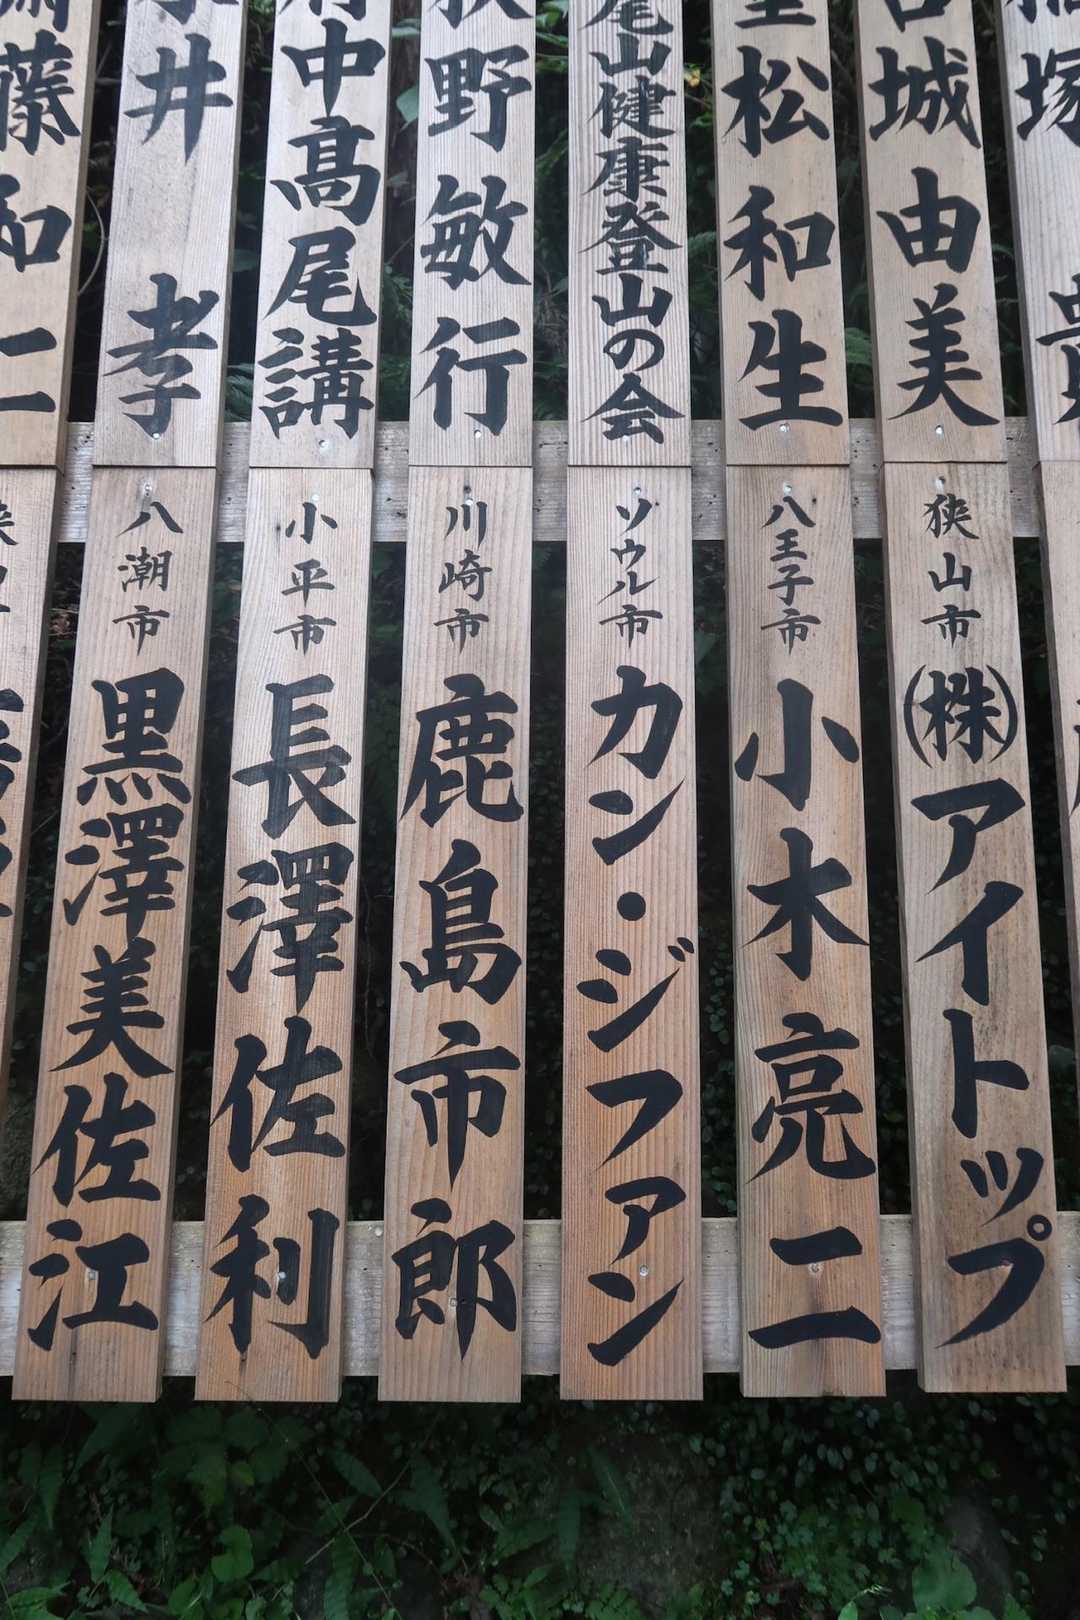 塚
城由美
松和生
尾山健康登山の会
野敏行
中髙尾講
井孝
藤和二
狭山市 (株)アイトップ
八王子市 小木亮二
ソウル市 カン・ジファン
川崎市 鹿島市郎
小平市 長澤佐利
八潮市 黒澤美佐江